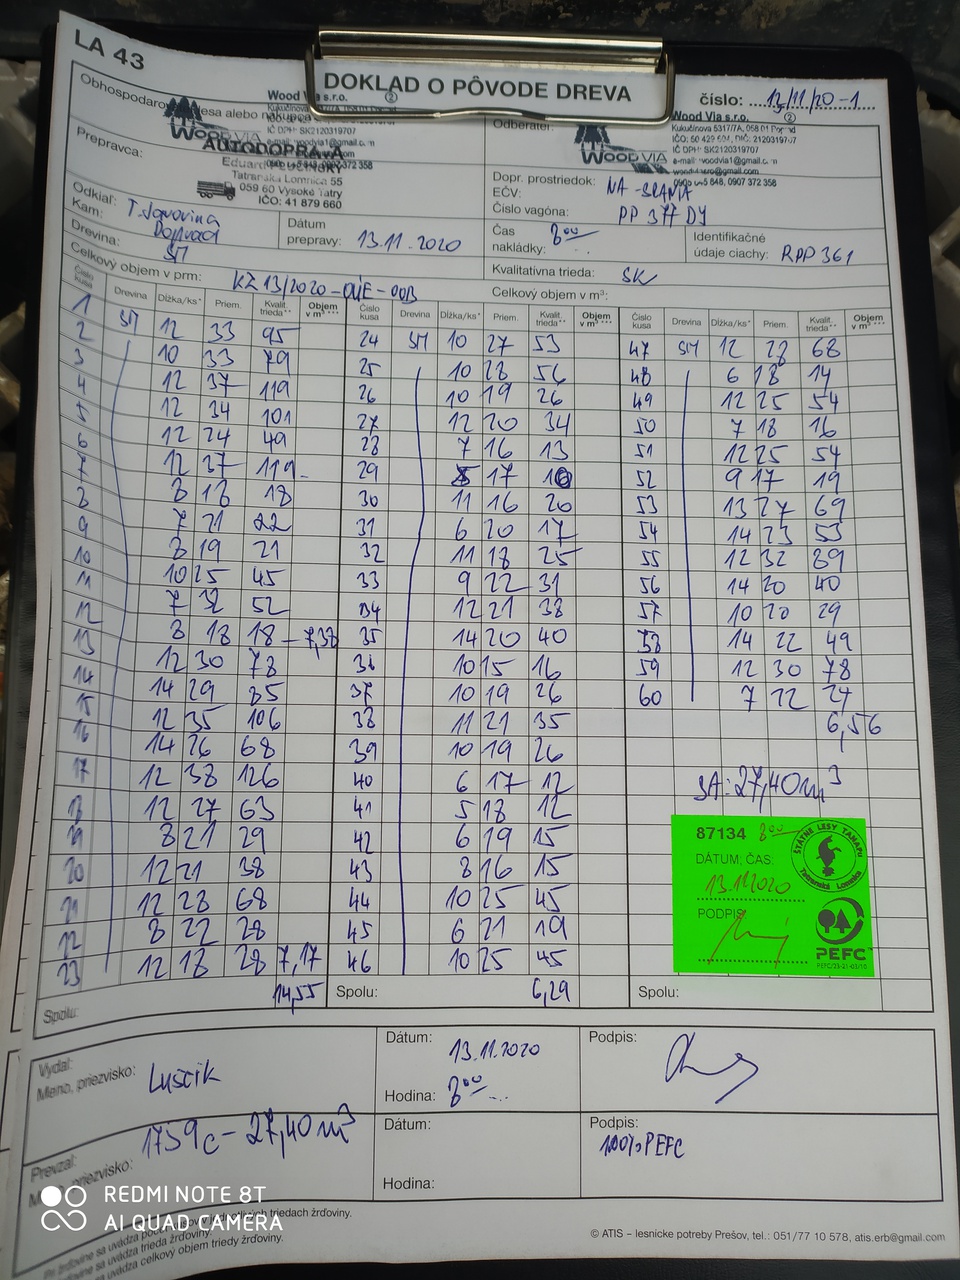 LA 43
DOKLAD O PÔVODE DREVA
číslo: 13/11/20-1
Obhospodarov lesa alebo nákupca
Wood Via s.r.o. ②
Kukučínova 5317/7A
IČ DPH: SK2120319707
e-mail: woodvia1@gmail.com
0905 648, 0907 372 358
WOODVIA
Odberateľ:
Wood Via s.r.o. ②
Kukučínova 5317/7A, 058 01 Poprad
IČO: 50 429 604, DIČ: 2120319707
IČ DPH: SK2120319707
e-mail: woodvia1@gmail.com
0905 648, 0907 372 358
WOODVIA
Prepravca:
AUTODOPRAVA
Eduard
Tatranská Lomnica 55
059 60 Vysoké Tatry
IČO: 41 879 660
Dopr. prostriedok: NA-SCANIA
EČV:
Číslo vagóna: PP 377 DY
Odkiaľ: T. Javorina
Kam: Poprad
Dátum prepravy: 13.11.2020
Čas nakládky: 8⁰⁰
Identifikačné údaje ciachy: RPP 361
Drevina: SM
Kvalitatívna trieda: SK
Celkový objem v prm: KZ 13/2020-OUE-OOB
Celkový objem v m³:
Číslo kusa Drevina Dĺžka/ks* Priem. Kvalit. trieda** Objem v m³ ***
Číslo kusa Drevina Dĺžka/ks* Priem. Kvalit. trieda** Objem v m³ ***
Číslo kusa Drevina Dĺžka/ks* Priem. Kvalit. trieda** Objem v m³ ***
1 SM 12 33 95 24 SM 10 27 53 47 SM 12 28 68
2 10 33 79 25 10 28 56 48 6 18 14
3 12 37 119 26 10 19 26 49 12 25 54
4 12 34 101 27 12 20 34 50 7 18 16
5 12 24 49 28 7 16 13 51 12 25 54
6 12 37 119 29 17 10 52 9 17 19
7 8 18 18 30 11 16 20 53 13 27 69
8 7 21 22 31 6 20 17 54 14 23 53
9 8 19 21 32 11 18 25 55 12 32 89
10 10 25 45 33 9 22 31 56 14 20 40
11 7 32 52 34 12 21 38 57 10 20 29
12 8 18 18 - 7,38 35 14 20 40 58 14 22 49
13 12 30 78 36 10 15 16 59 12 30 78
14 14 29 85 37 10 19 26 60 7 22 24
15 12 35 106 38 11 21 35 6,56
16 14 26 68 39 10 19 26
17 12 38 126 40 6 17 12
18 12 27 63 41 5 18 12
19 8 21 29 42 6 19 15
20 12 21 38 43 8 16 15
21 12 28 68 44 10 25 45
22 8 22 28 45 6 21 19
23 12 18 28 7,17 46 10 25 45
SA: 27,40m³
87134 8⁰⁰
DÁTUM, ČAS:
13.11.2020
PODPIS
ŠTÁTNE LESY TANAPU
Tatranská Lomnica
PEFC
PEFC/23-21-03/10
Spolu: 14,55 Spolu: 6,29 Spolu:
Vydal:
Meno, priezvisko: Luščik
Dátum: 13.11.2020
Hodina: 8⁰⁰
Podpis:
Prevzal:
Meno, priezvisko:
1739c - 27,40m³
Dátum:
Hodina:
Podpis:
100% PEFC
jednotlivých triedach žrďoviny.
sa uvádza trieda žrďoviny.
sa uvádza celkový objem triedy žrďoviny.
© ATIS – lesnícke potreby Prešov, tel.: 051/77 10 578, atis.erb@gmail.com
REDMI NOTE 8T
AI QUAD CAMERA